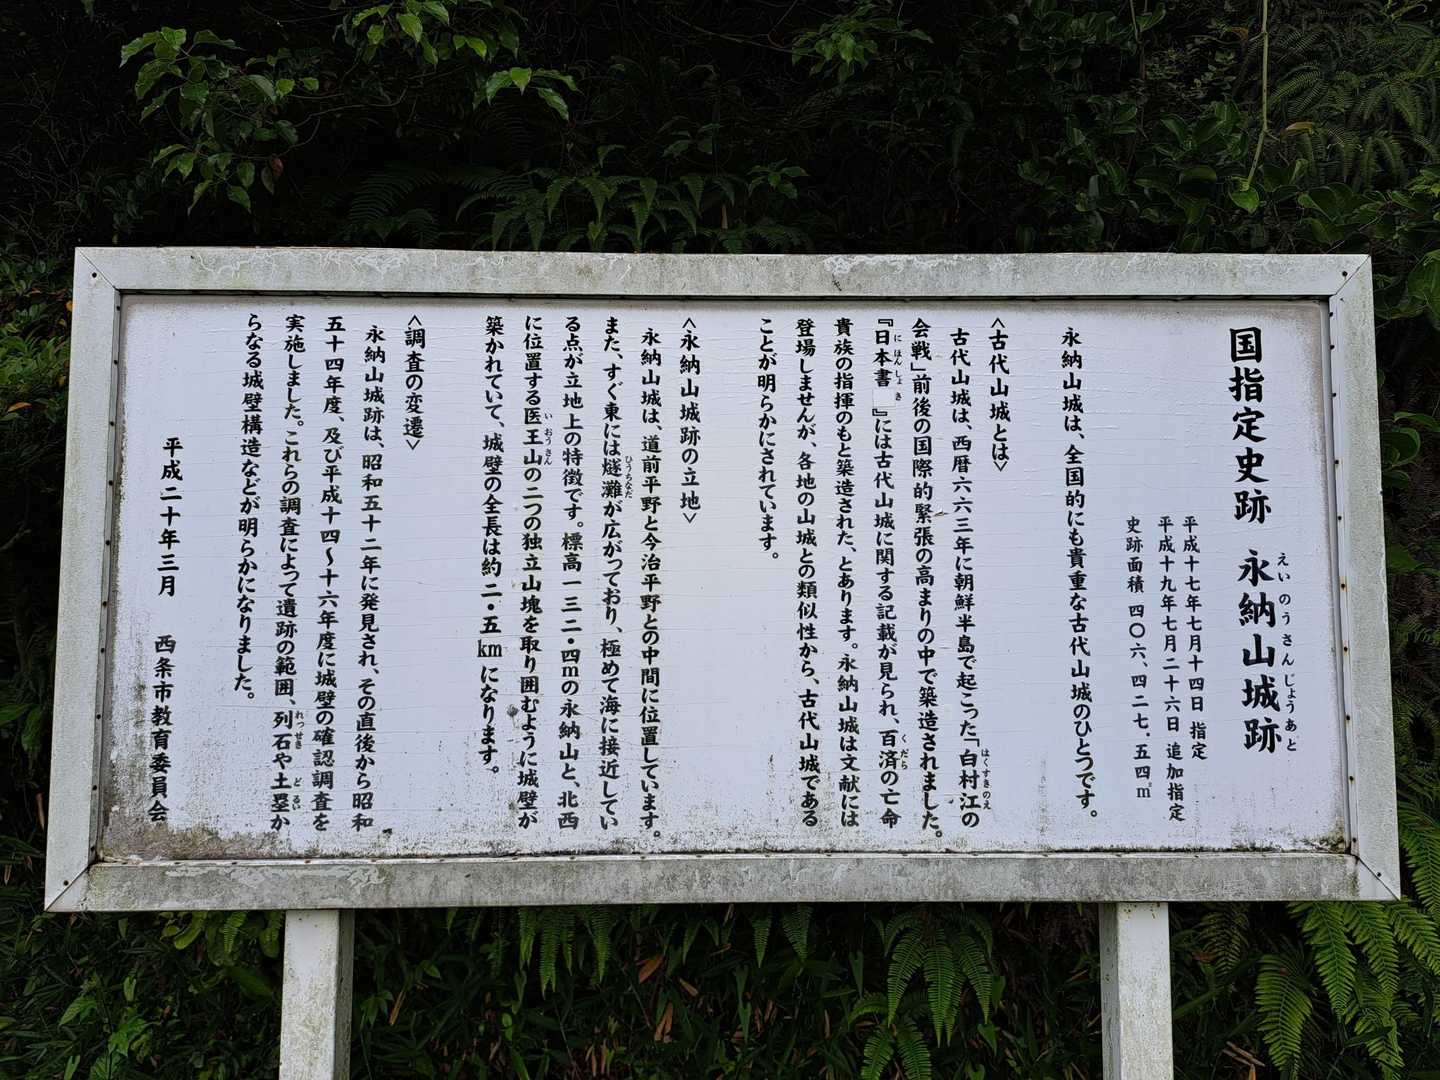 国指定史跡 永納山城跡
えいのうさんじょうあと
平成十七年七月十四日 指定
平成十九年七月二十六日 追加指定
史跡面積 四〇六、四二七.五四㎡
永納山城は、全国的にも貴重な古代山城のひとつです。
<古代山城とは>
古代山城は、西暦六六三年に朝鮮半島で起こった「白村江の
はくすきのえ
会戦」前後の国際的緊張の高まりの中で築造されました。
『日本書 』には古代山城に関する記載が見られ、百済の亡命
にほんしょき
くだら
貴族の指揮のもと築造された、とあります。永納山城は文献には
登場しませんが、各地の山城との類似性から、古代山城である
ことが明らかにされています。
<永納山城跡の立地>
永納山城は、道前平野と今治平野との中間に位置しています。
また、すぐ東には燧灘が広がっており、極めて海に接近してい
ひうちなだ
る点が立地上の特徴です。標高一三二・四mの永納山と、北西
に位置する医王山の二つの独立山塊を取り囲むように城壁が
いおうさん
築かれていて、城壁の全長は約二・五kmになります。
<調査の変遷>
永納山城跡は、昭和五十二年に発見され、その直後から昭和
五十四年度、及び平成十四～十六年度に城壁の確認調査を
実施しました。これらの調査によって遺跡の範囲、列石や土塁か
れっせき
どるい
らなる城壁構造などが明らかになりました。
平成二十年三月
西条市教育委員会